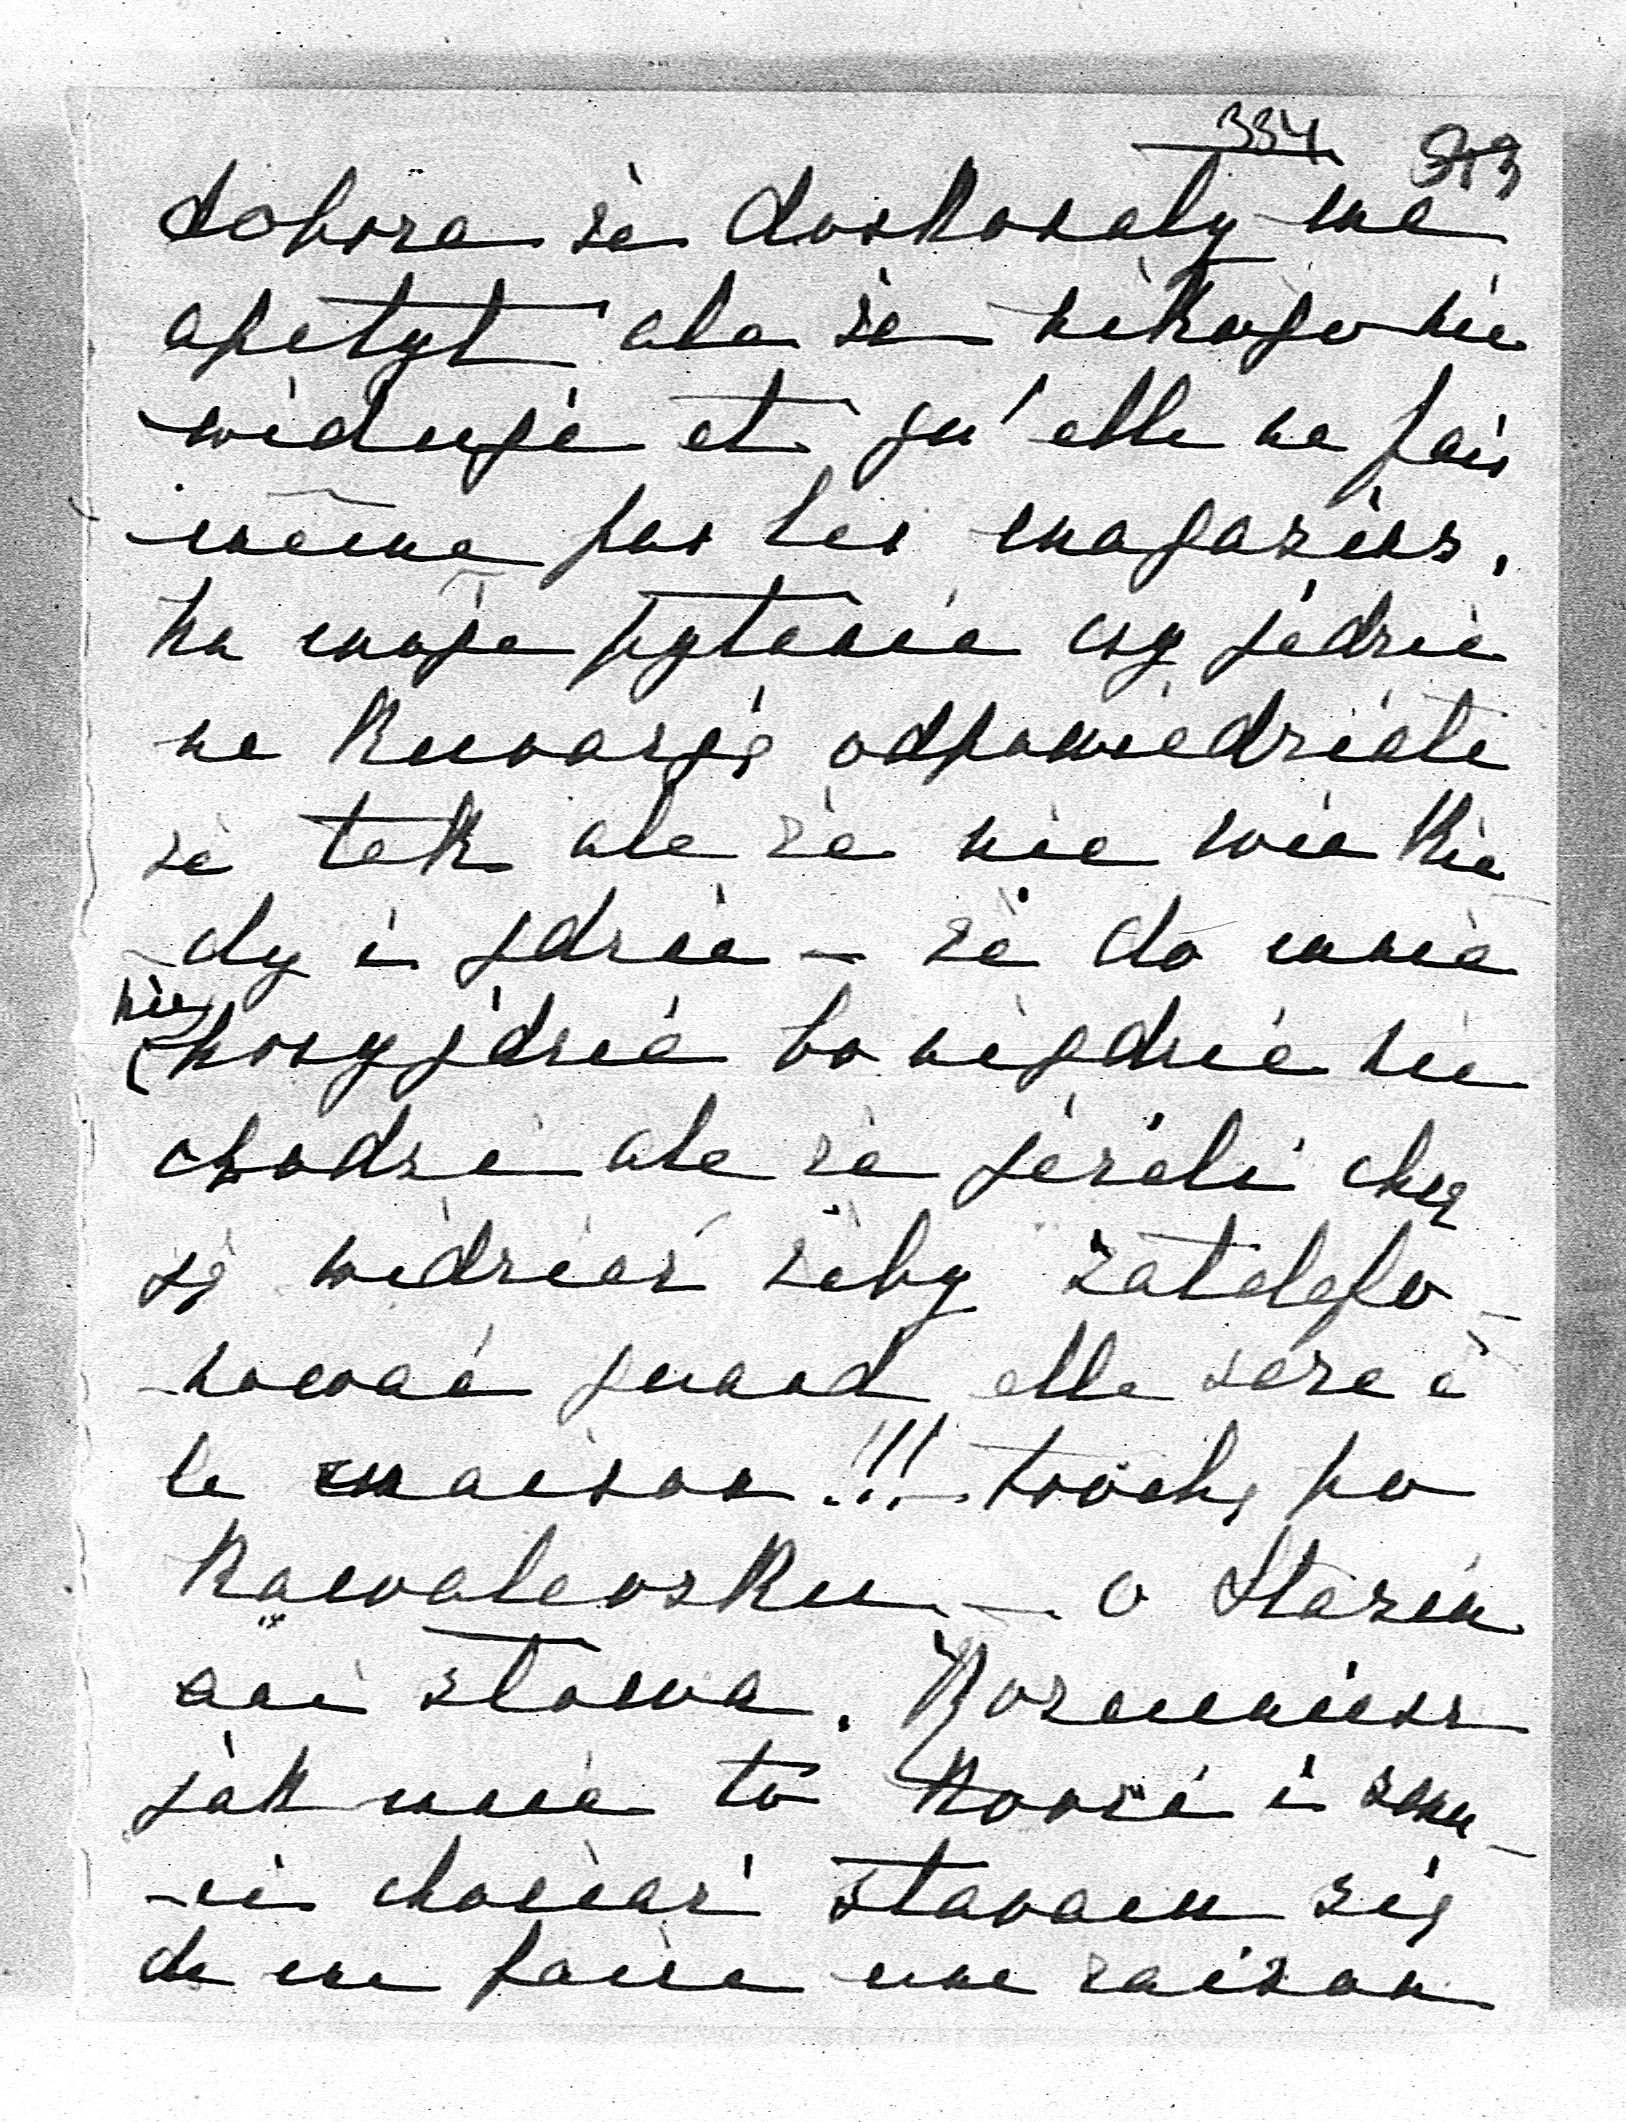 334 313
dobrze że doskonały ma
apetyt ale że nikogo nie
widuje et qu'elle ne fais
même pas les magazins.
Na moje pytanie czy jedzie
na kuracje odpowiedziała
że tak ale że nie wie kie-
-dy i gdzie – że do mnie
nie przyjdzie bo nigdzie nie
chodzi ale że jeżeli chcę
ją widzieć żeby zatelefo-
-nować quand elle sera à
la maison!!! trochę po
kawalersku – o Stasiu
ani słowa. Rozumiesz
jak mnie to korci i smu-
-ci chociaż staram się
de me faire une raison